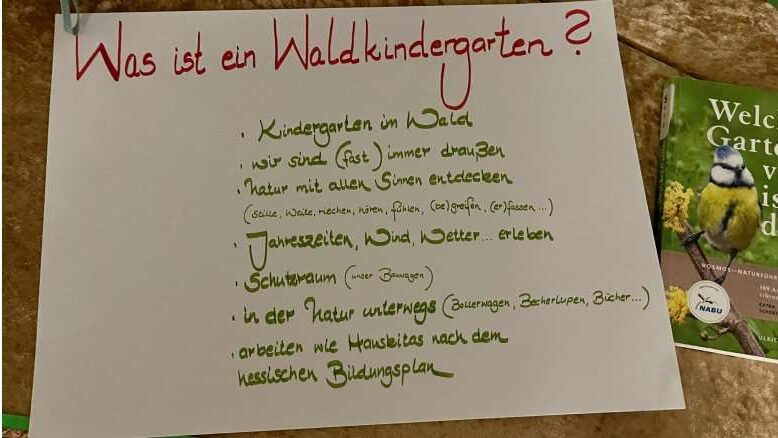 Was ist ein Waldkindergarten?
· Kindergarten im Wald
· wir sind (fast) immer draußen
· Natur mit allen Sinnen entdecken
(Stille, Weite, riechen, hören, fühlen, (be)greifen, (er)fassen...)
· Jahreszeiten, Wind, Wetter... erleben
· Schutzraum (unser Bauwagen)
· in der Natur unterwegs (Bollerwagen, Becherlupen, Bücher...)
· arbeiten wie Hauskitas nach dem
hessischen Bildungsplan
Welc
Garte
v
is
d
KOSMOS-NATURFÜHR
NABU
EXTRA
ULRIC